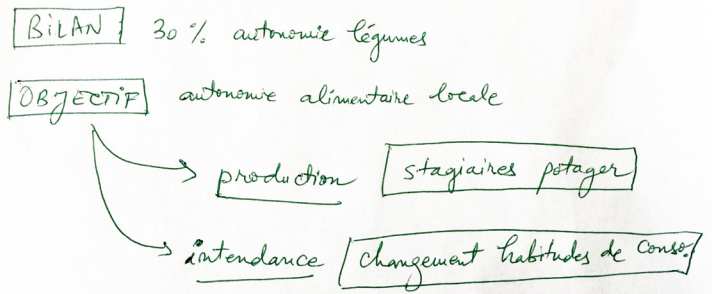 BILAN 30 % autonomie légumes
OBJECTIF autonomie alimentaire locale
production stagiaires potager
intendance changement habitudes de conso.